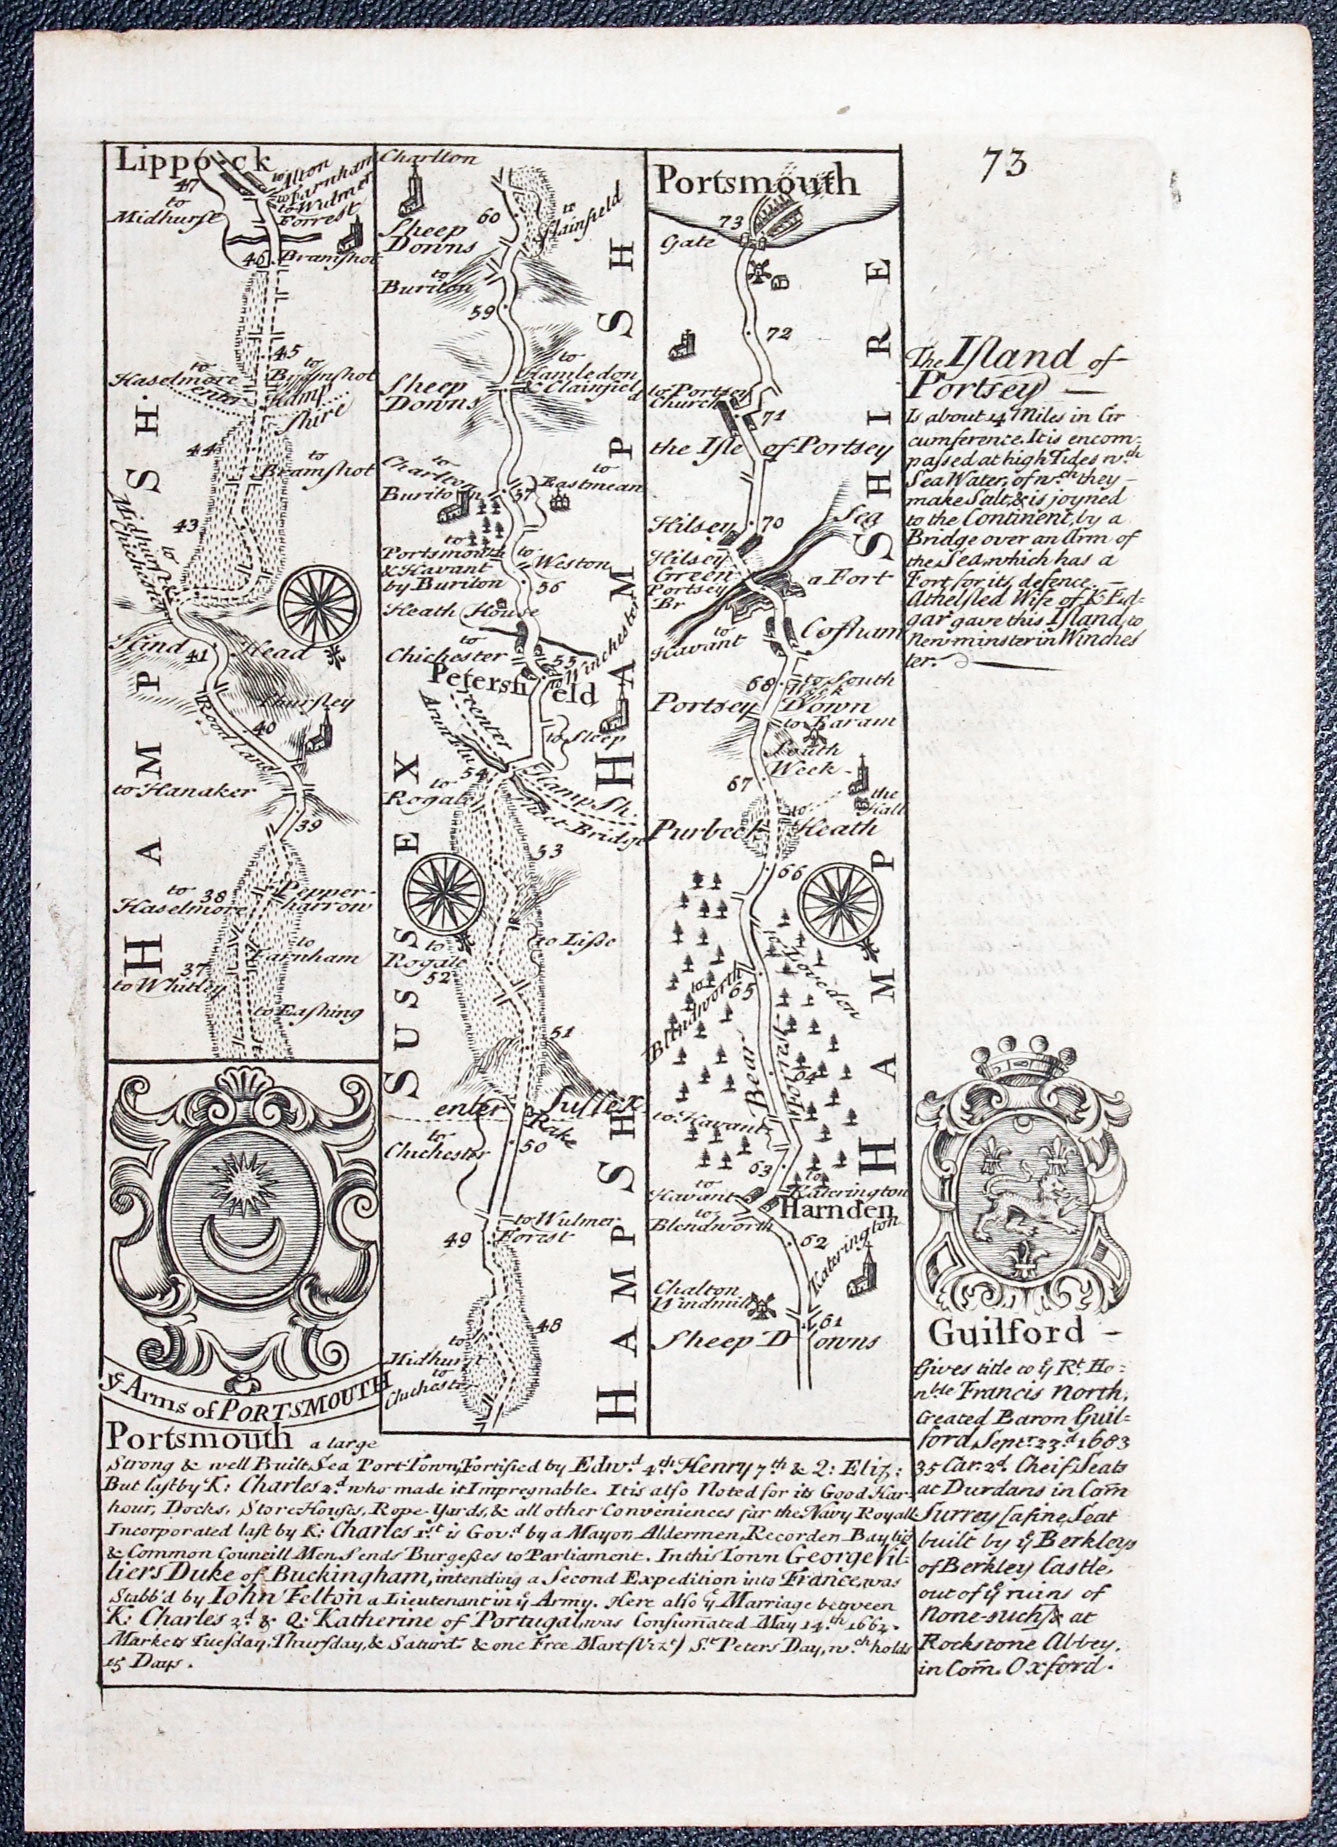 73
Lippock
47
to
Midhurst
to Alton
to Farnham
to Wulmer
Forrest
46
Bramshot
45
to
Haselmore
to
Bramshot
enter
Hamp
shire
44
to
Bramshot
43
to
Midhurst &
Chichester
HAMPSH.
Hind Head
41
Thursley
40
Road land
to Hanaker
39
38
to
Haselmore
Pepper-
harrow
to
Farnham
37
to Whitley
to Eashing
Charlton
60
to
Clainfield
Sheep
Downs
to
Buriton
59
to
Hamledon
& Clainfield
Sheep
Downs
to
Charlton
Buriton
57
to
Eastmean
to
Portsmouth
& Havant
by Buriton
to
Weston
56
Heath House
to
Chichester
55
to Winchester
Petersfield
enter
Arun Flu
to Steep
54
to
Rogate
Hampsh.
Fleet-Bridge
53
SUSSEX
to
Rogate
52
to Lisse
51
enter Sussex
Rake
50
to
Chichester
to Wulmer
Forest
49
48
to
Midhurst
to
Chichester
HAMPSH
HAMPSH
Portsmouth
73
Gate
72
to Portsey
Church
71
the Isle of Portsey
Hilsey
70
Sea
Hilsey
Green
Portsey
Br
a Fort
to
Havant
Cosham
68
to South
Week
Portsey Down
to Faram
South
Week
67
to
the
Hall
Purbeck Heath
66
to
Blendworth
65
Bear Forrest
64
to Havant
63
to
Havant
to
Katerington
to
Blendworth
Harnden
62
Katerington
Chalton
Windmill
61
Sheep Downs
HAMPSHIRE
The Island of
Portsey —
Is about 14 Miles in Cir
cumference. It is encom-
passed at high Tides wth
Sea Water, of wch they —
make Salt, & is joyned
to the Continent, by a
Bridge over an Arm of
the Sea, which has a
Fort for its defence. —
Athelfled Wife of K: Ed-
gar gave this Island, to
Newminster in Winches
ter.
ye Arms of PORTSMOUTH
Portsmouth a large
Strong & well Built Sea Port-Town, Fortified by Edwd 4th Henry 7th & Q: Eliz:
But last by K: Charles 2d who made it Impregnable. It is also Noted for its Good Har-
hour, Docks, Store Houses, Rope-Yards, & all other Conveniences for the Navy Royall
Incorporated last by K: Charles 1st is Govd by a Mayor, Aldermen, Recorder, Bayliffs
& Common Councill Men, Sends Burgesses to Parliament. In this Town George Vil-
liers Duke of Buckingham, intending a Second Expedition into France, was
Stabb'd by Iohn Felton a Lieutenant in ye Army. Here also ye Marriage between
K: Charles 2d & Q: Katherine of Portugal, was Consumated May 14th 1662.
Markets Tuesday, Thursday, & Saturd. & one Free Mart (Vizt) St Peters Day, wch holds
15 Days.
Guilford -
Gives title to ye Rt Ho-
nble Francis North,
Created Baron Guil-
ford, Septr 23d 1683
35 Car: 2d. Cheif Seats
at Durdans in Com
Surrey [a fine Seat
built by ye Berkleys
of Berkley Castle,
out of ye ruins of
None-such] & at
Rockstone Abbey,
in Com. Oxford.